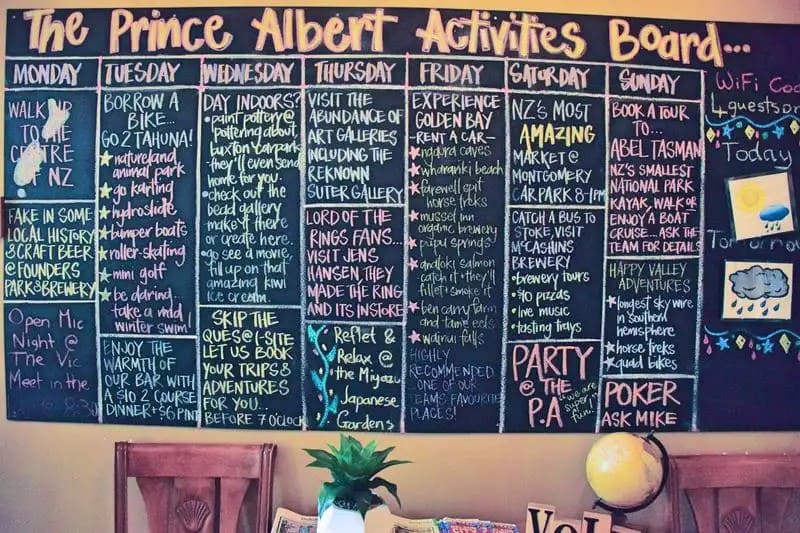 The Prince Albert Activities Board...
MONDAY
WALK UP
TO THE
CENTRE
OF NZ
FAKE IN SOME
LOCAL HISTORY
& CRAFT BEER
@ FOUNDERS
PARK & BREWERY
Open Mic
Night @
The Vic
Meet in the
TUESDAY
BORROW A
BIKE...
GO 2 TAHUNA!
natureland
animal park
go karting
hydroslide
bumper boats
roller-skating
mini golf
be daring...
take a mid
winter swim!
ENJOY THE
WARMTH OF
OUR BAR WITH
A $10 2 COURSE
DINNER + $6 PINT
WEDNESDAY
DAY INDOORS?
paint pottery @
pottering about
buxton carpark
they'll even send
home for you.
check out the
bead gallery
make it there
or create here.
go see a movie,
fill up on that
amazing kiwi
ice cream.
SKIP THE
QUES @ I-SITE
LET US BOOK
YOUR TRIPS &
ADVENTURES
FOR YOU...
BEFORE 7 O'CLOCK
THURSDAY
VISIT THE
ABUNDANCE OF
ART GALLERIES
INCLUDING THE
REKNOWN
SUTER GALLERY
LORD OF THE
RINGS FANS...
VISIT JENS
HANSEN, THEY
MADE THE RING
AND ITS INSTORE
Reflet &
Relax @
the Miyazu
Japanese
Gardens
FRIDAY
EXPERIENCE
GOLDEN BAY
-RENT A CAR-
ngarua caves
wharariki beach
farewell spit
horse treks
mussel inn
organic brewery
pupu springs
anatoki salmon
catch it + they'll
fillet + smoke it
ben carry farm
and tame eels
wainui falls
HIGHLY
RECOMMENDED
...ONE OF OUR
TEAMS FAVOURITE
PLACES!
SATURDAY
NZ'S MOST
AMAZING
MARKET @
MONTGOMERY
CARPARK 8-1PM
CATCH A BUS TO
STOKE, VISIT
McCASHINS
BREWERY
brewery tours
$10 pizzas
live music
tasting trays
PARTY
@ THE
P.A
"we are
super
fun!"
SUNDAY
BOOK A TOUR
TO...
ABEL TASMAN
NZ'S SMALLEST
NATIONAL PARK
KAYAK, WALK OR
ENJOY A BOAT
CRUISE... ASK THE
TEAM FOR DETAILS
HAPPY VALLEY
ADVENTURES
longest sky wire
in southern
hemisphere
horse treks
quad bikes
POKER
ASK MIKE
WiFi Coo
4 guests on
Today
Tomorrow
VOL